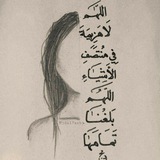 اللهم
لا هزيمة
في منتصف
الأشياء
اللهم
بلغنا
تمامها